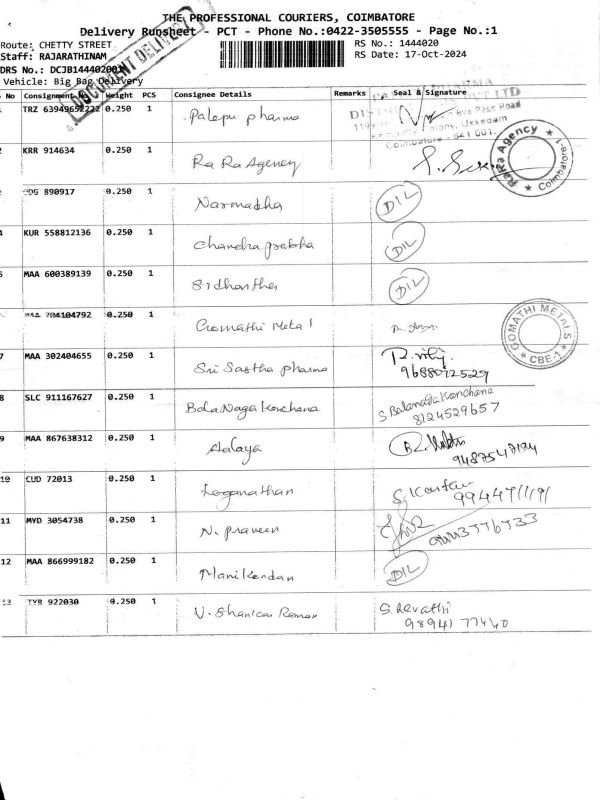 THE PROFESSIONAL COURIERS, COIMBATORE
Delivery Runsheet - PCT - Phone No.:0422-3505555 - Page No.:1
Route: CHETTY STREET
RS No.: 1444020
Staff: RAJARATHINAM
RS Date: 17-Oct-2024
DRS No.: DCJB14440200
Vehicle: Big Bag Delivery
DOCUMENT DELIVERY
No Consignment No Weight PCS Consignee Details Remarks Seal & Signature
TRZ 63949652222 0.250 1 Palepu pharma
Bye Pass Road
Colony, Ukkadam
Coimbatore - 641 001.
KRR 914634 0.250 1 Ra Ra Agency
Ra Ra Agency ★ Coimbatore-1 ★
890917 0.250 1 Narmadha DIL
4 KUR 558812136 0.250 1 Chandra prabha DIL
5 MAA 600389139 0.250 1 Sidhantha DIL
704104792 0.250 1 Gomathi Metal
GOMATHI METALS ★ CBE-1 ★
7 MAA 302404655 0.250 1 Sri Sastha pharma
9688072529
8 SLC 911167627 0.250 1 Bala Naga Kanchana S Balanaga Kanchana
8124529657
9 MAA 867638312 0.250 1 Aalaya
10 CUD 72013 0.250 1 Loganathan
11 MYD 3054738 0.250 1 N. Praveen
12 MAA 866999182 0.250 1 Manikandan DIL
13 TYR 922030 0.250 1 V. Shankar Raman S. Revathi
98941 77440